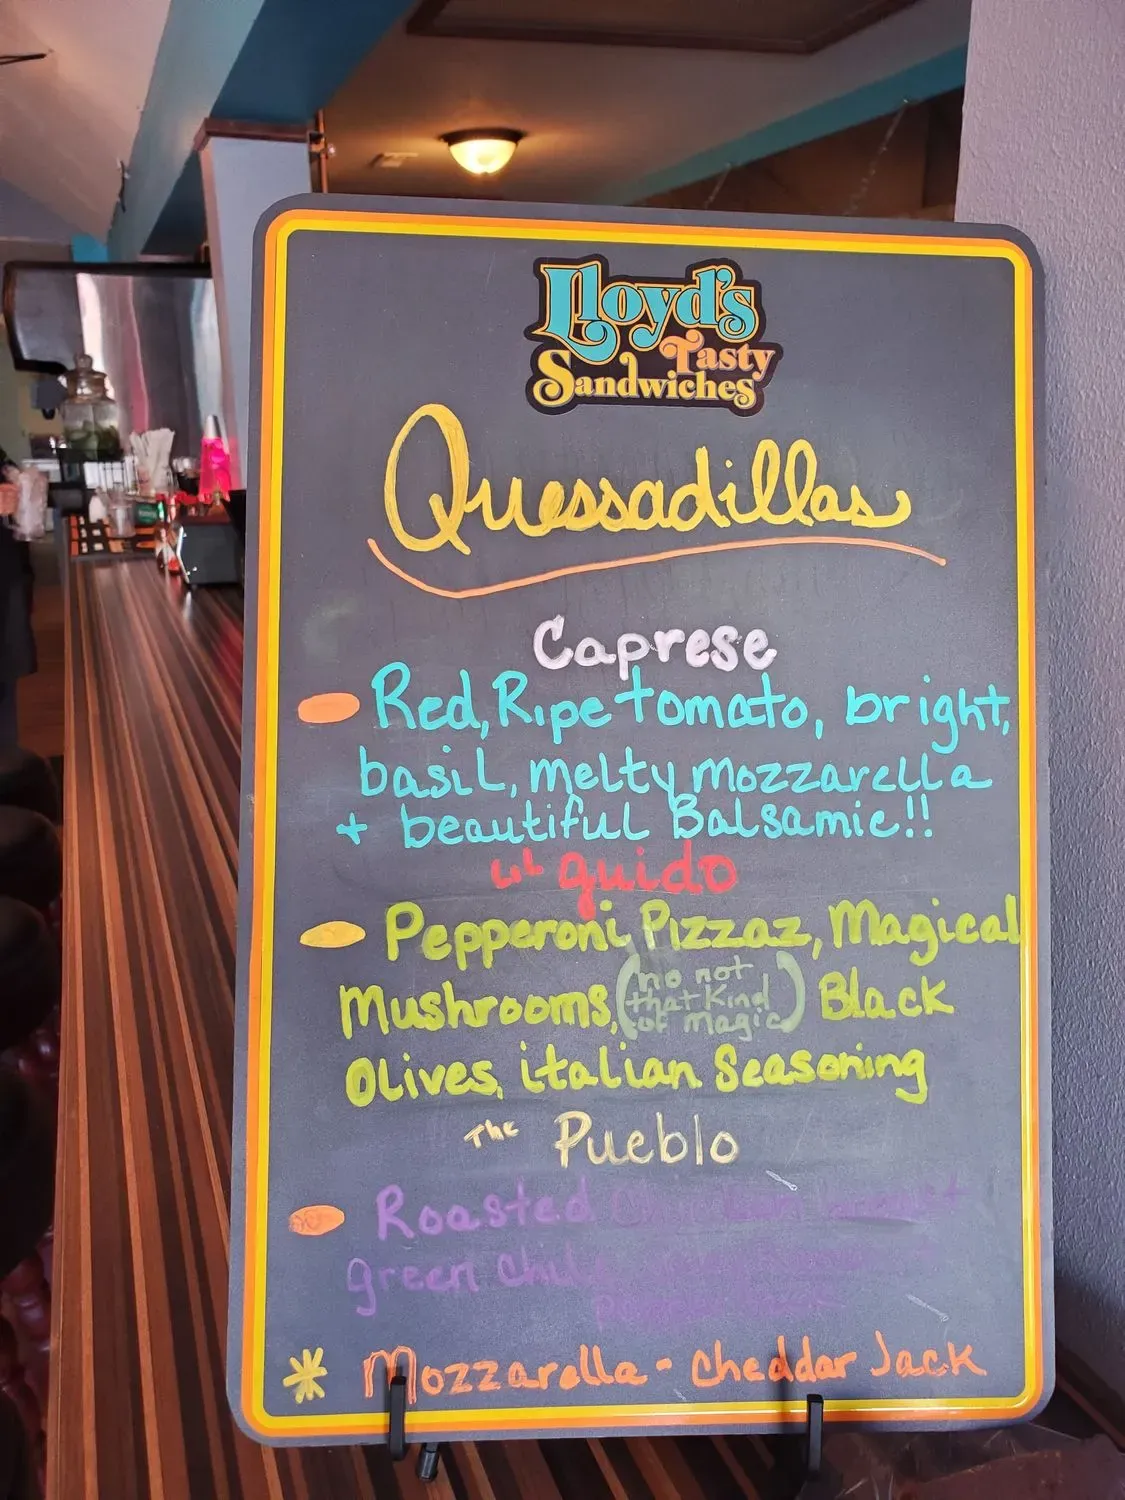 Lloyd's
Tasty
Sandwiches
Quessadillas
Caprese
Red, Ripe tomato, bright,
basil, melty mozzarella
+ beautiful Balsamic!!
Lil guido
Pepperoni Pizzaz, Magical
Mushrooms, (no not
that kind
of magic) Black
Olives, italian Seasoning
The Pueblo
Roasted Chicken breast
green Chile
pepper Jack
* Mozzarella - Cheddar Jack